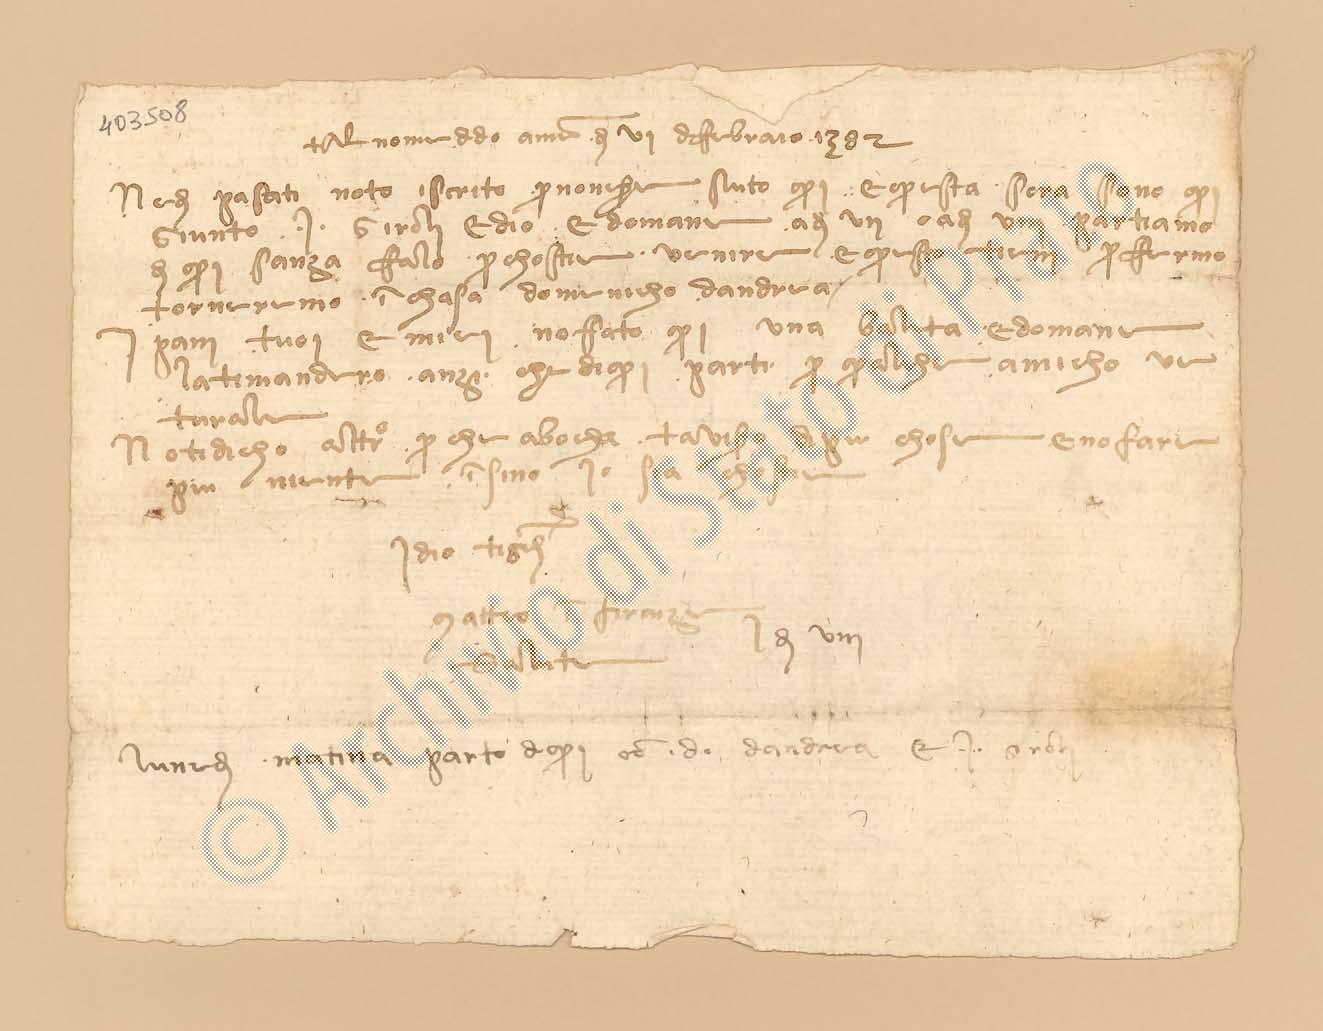 403508
+ Al nome dido amē dì VI di febraio 1382
Nedì pasati noto iscrito p nonesere suto qi e questa sera sono qi
giunto edio edomane adì VII o adì VIII partiamo
di qi sanza fallo p choste venire e questo tieni p fermo
torneremo ī chasa domenicho dandrea
I pani tuoi e miei no fato qi una e domane
latimandero anzi che di qi parti p qualche amicho ve
turale
No ti dicho altro p che abocha taviso di piu chose e no fare
piu niente īsino Io sia choste
Idio tighi
Matteo ī firenze
dì VIII
lunedì matina parto di qi dandrea e
© Archivio di Stato di Prato